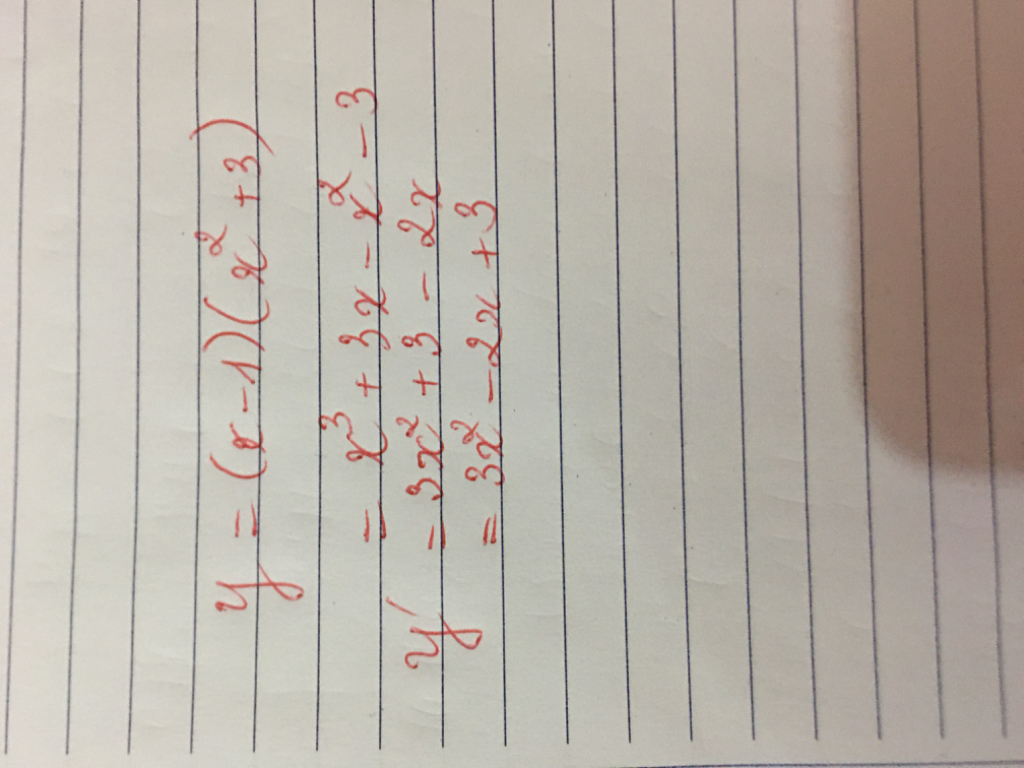 y = (x-1)(x² + 3)
= x³ + 3x - x² - 3
y' = 3x² + 3 - 2x
= 3x² - 2x + 3